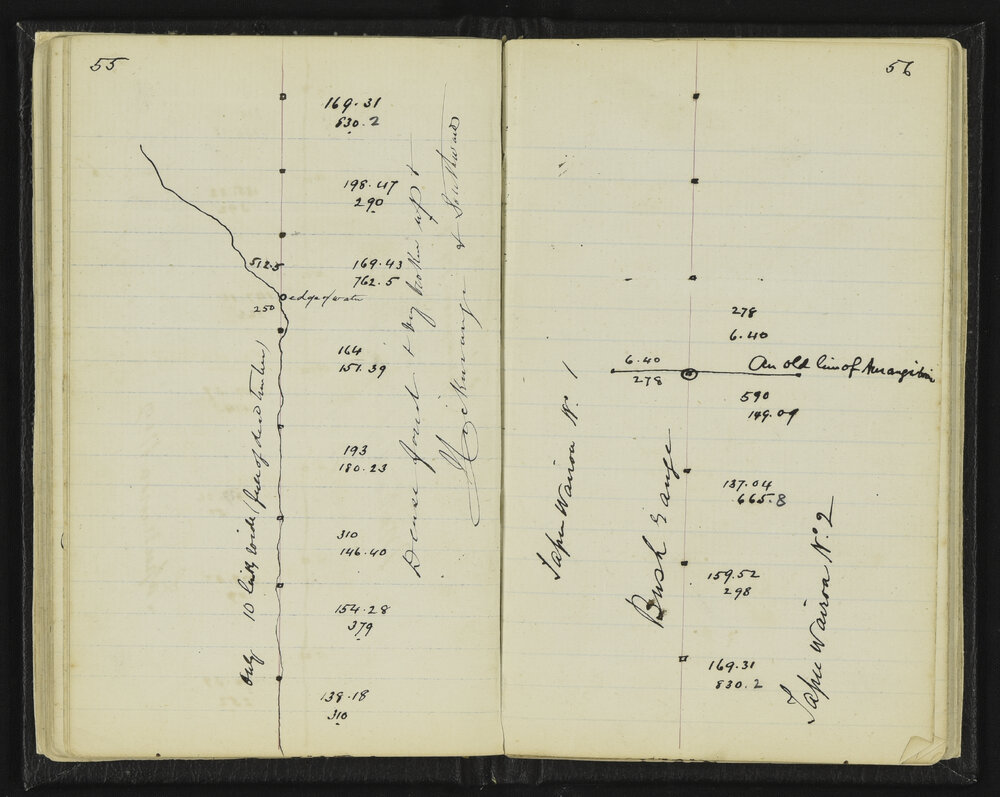 55
169.31
830.2
198.47
290
512.5
169.43
762.5
edge of water
250
164
151.39
193
180.23
310
146.40
154.28
379
138.18
310
Only 10 links wide (full of dead timber)
Dense forest & very broken up &
& Southward
56
278
6.40
6.40
278
An old line of
590
149.09
137.04
665.8
159.52
298
169.31
830.2
Tapu Wairoa No. 1
Bush Range
Tapu Wairoa No. 2